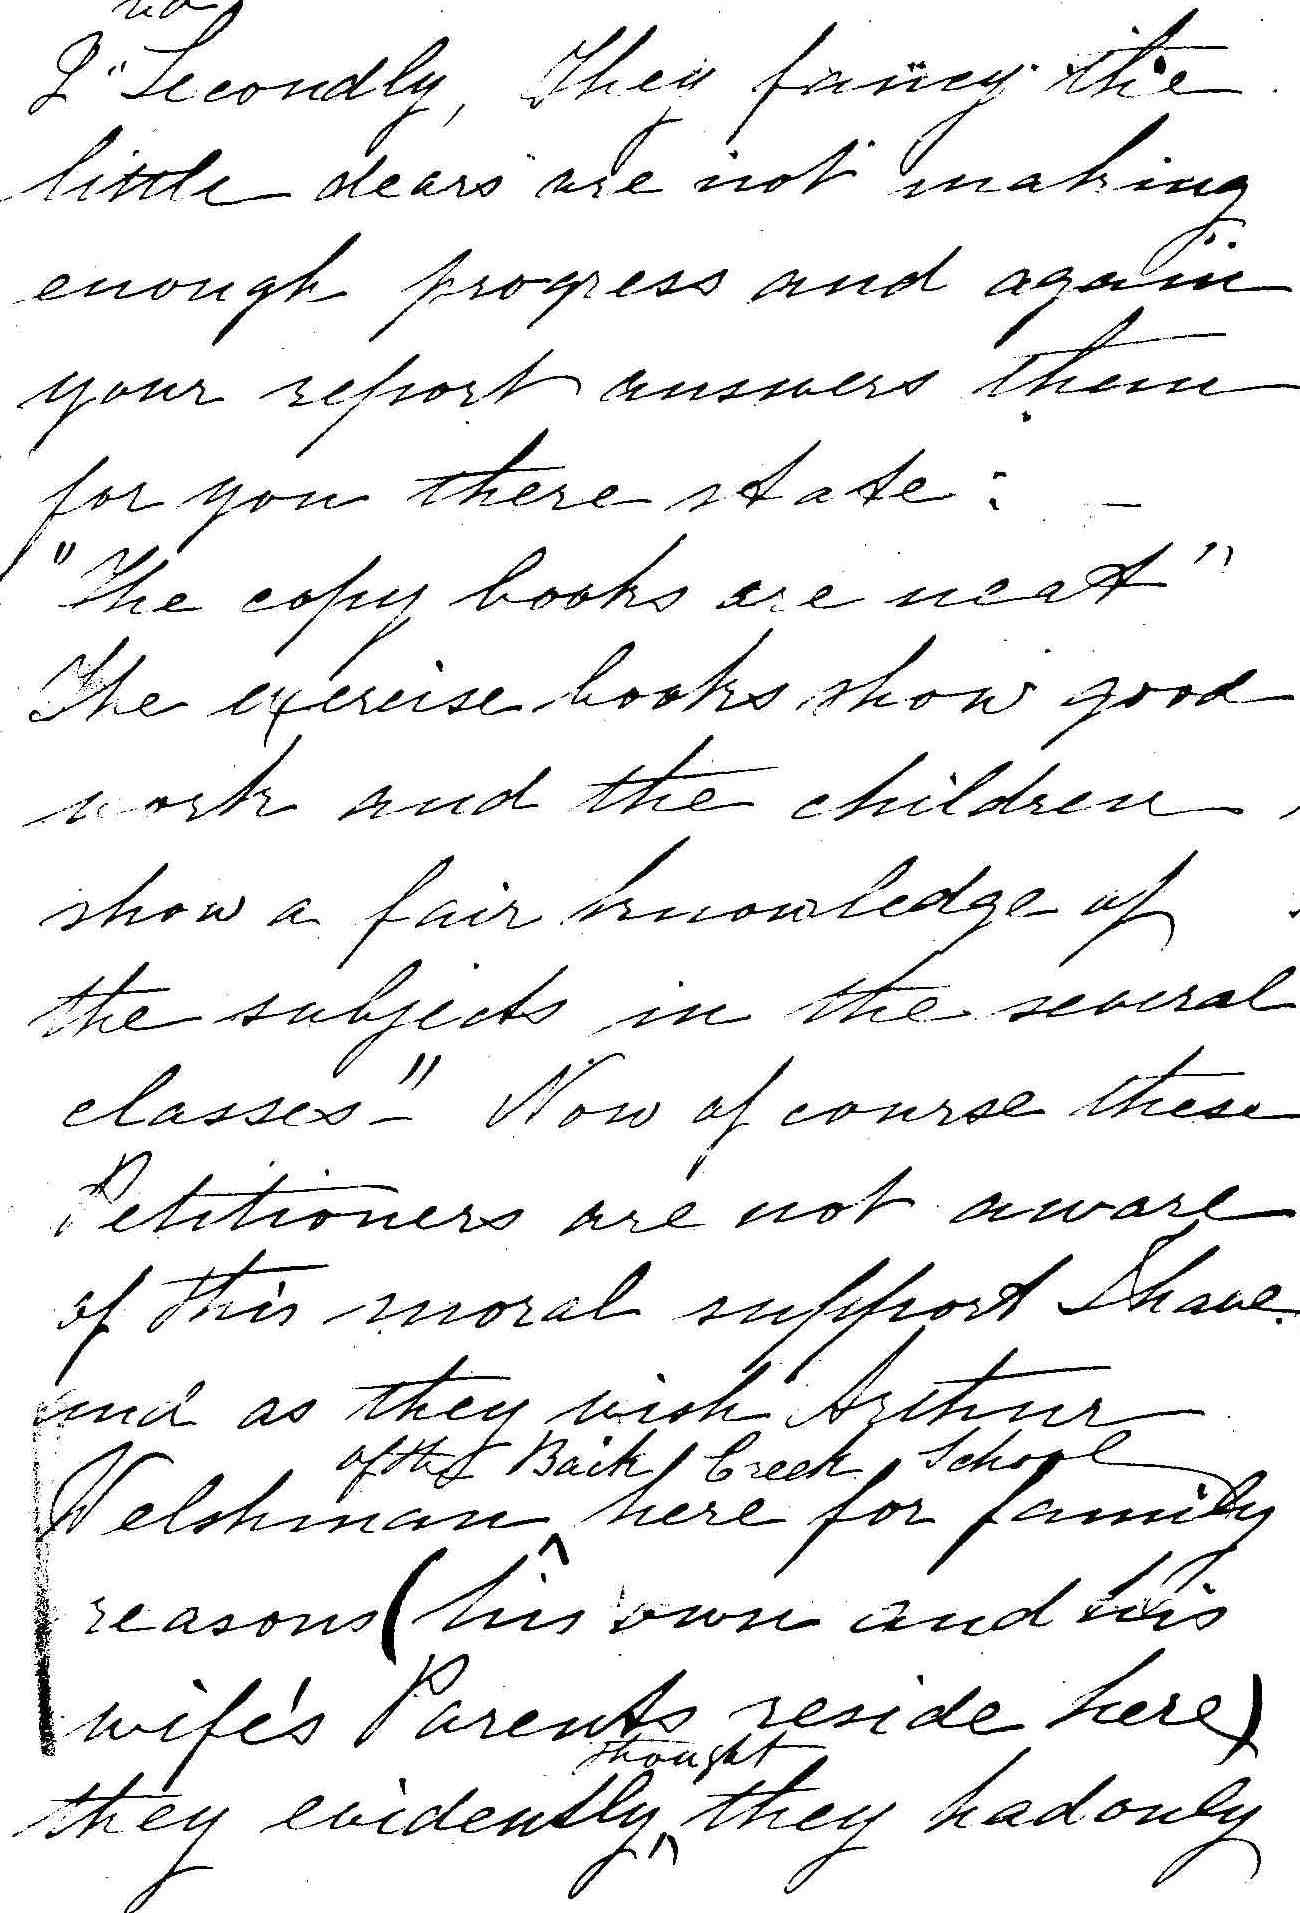 2nd Secondly, They fancy the
little dears are not making
enough progress and again
your report answers them
for you there state: —
"The copy books are neat"
The exercise books show good
work and the children
show a fair knowledge of
the subjects in the several
classes—" Now of course these
Petitioners are not aware
of this moral support I have
and as they wish Arthur
of the Back Creek School
Welshman ^ here for family
reasons (his own and his
wife's Parents reside here)
thought
they evidently ^ they had only